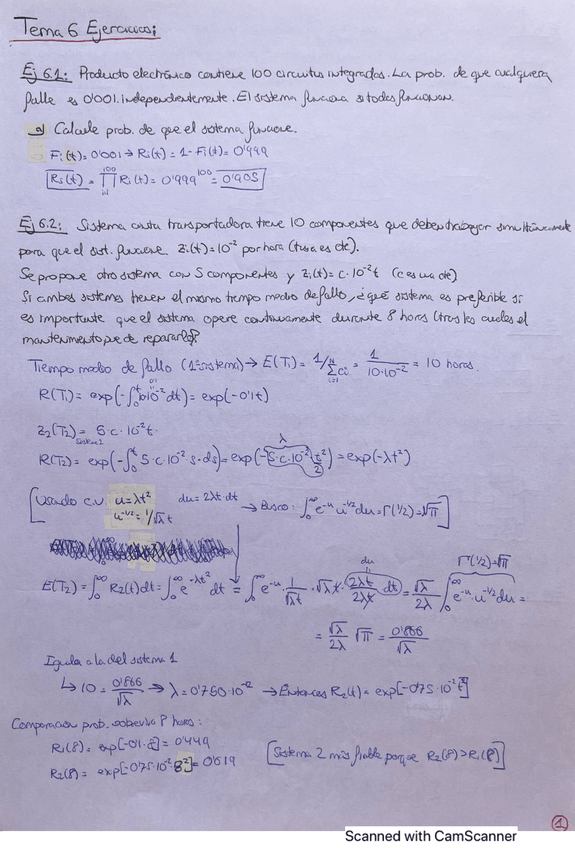 Tema 6 Ejercicios:
Ej 6.1: Producto electrónico contiene 100 circuitos integrados. La prob. de que cualquiera
falle es 0'001 independientemente. El sistema funciona si todos funcionan.
a) Calcule prob. de que el sistema funcione.
Fi(t) = 0'001 → Ri(t) = 1 - Fi(t) = 0'999
Rs(t) = ∏_{i=1}^{100} Ri(t) = 0'999^100 = 0'905
Ej 6.2: Sistema cinta transportadora tiene 10 componentes que deben trabajar simultáneamente
para que el sist. funcione. Zi(t) = 10^-2 por hora (tasa es cte).
Se propone otro sistema con 5 componentes y Zi(t) = c·10^-2 t (c es una cte)
Si ambos sistemas tienen el mismo tiempo medio de fallo, ¿qué sistema es preferible si
es importante que el sistema opere continuamente durante 8 horas (tras las cuales el
mantenimiento puede repararlo)?
Tiempo medio de fallo (1er sistema) → E(T1) = 1/∑_{i=1}^{N} Ci = 1/(10·10^-2) = 10 horas.
R(T1) = exp(-∫_0^t 10·10^-2 dt) = exp(-0'1t)
Z2(T2) = 5·c·10^-2 t.
Sistema 2
R(T2) = exp(-∫_0^t 5·c·10^-2 s·ds) = exp(-5·c·10^-2 t²/2) = exp(-λt²)
λ
[Usando c.v u = λt² du = 2λt·dt → Busco: ∫_0^∞ e^-u u^-1/2 du = Γ(1/2) = √π]
u^-1/2 = 1/√λ t
du Γ(1/2) = √π
E(T2) = ∫_0^∞ R2(t)dt = ∫_0^∞ e^-λt² dt = ∫_0^∞ e^-u 1/(√λ t) · √λ t · (2λt/2λt dt) = √λ/2λ ∫_0^∞ e^-u · u^-1/2 du =
= √λ/2λ √π = 0'866/√λ
Iguala a la del sistema 1
↳ 10 = 0'866/√λ → λ = 0'750·10^-2 → Entonces R2(t) = exp[-0'75·10^-2 t²]
Comparación prob. sobrevivir 8 horas:
R1(8) = exp[-0'1·8] = 0'449
R2(8) = exp[-0'75·10^-2·8²] = 0'619
[Sistema 2 más fiable porque R2(8) > R1(8)]
1
Scanned with CamScanner